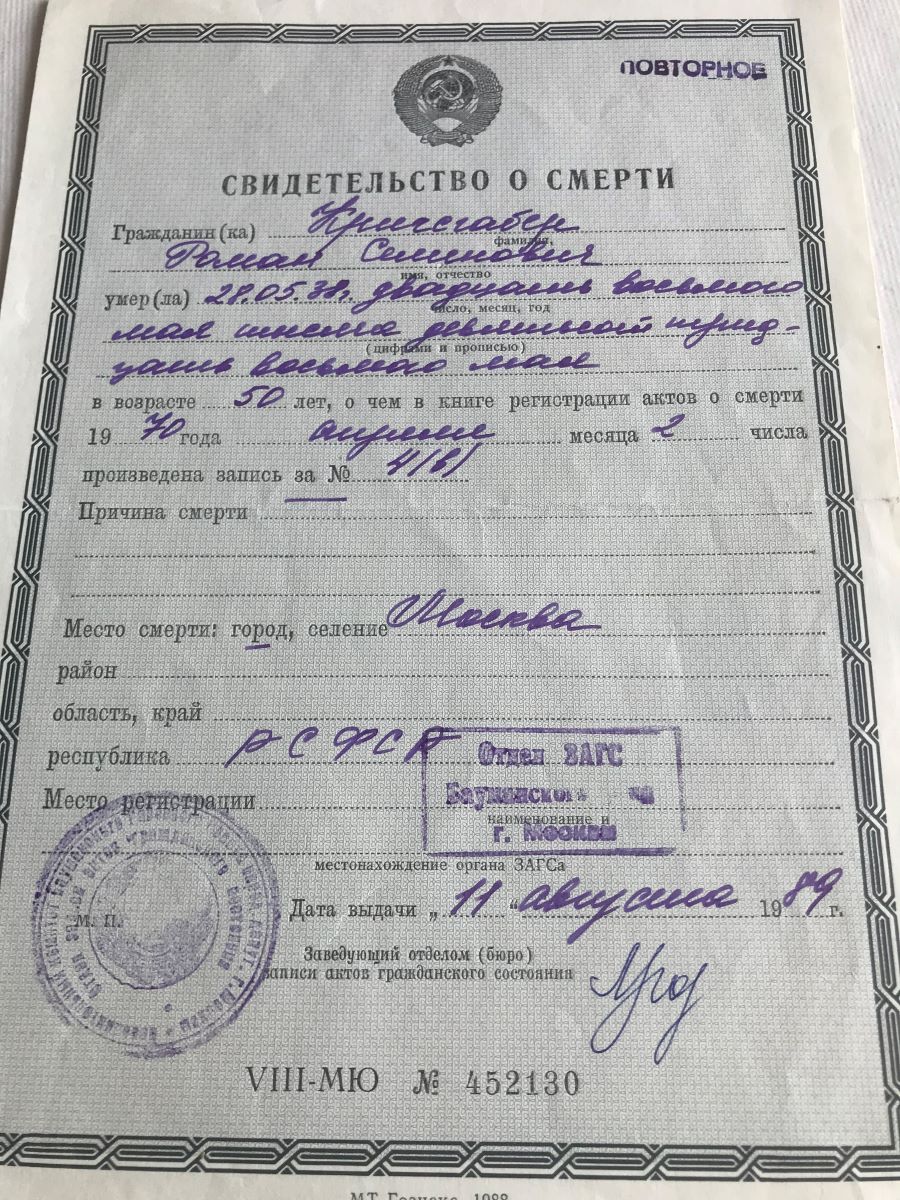 ПОВТОРНОЕ
СВИДЕТЕЛЬСТВО О СМЕРТИ
Гражданин(ка)
фамилия,
Роман Семенович
имя, отчество
умер(ла) 28.05.38г. двадцать восьмого
число, месяц, год
мая тысяча девятьсот трид-
(цифрами и прописью)
цать восьмого мая
в возрасте 50 лет, о чем в книге регистрации актов о смерти
19 70 года апреля месяца 2 числа
произведена запись за №
Причина смерти
Место смерти: город, селение Москва
район
область, край
республика РСФСР
Отдел ЗАГС
Место регистрации
наименование и
г. Москвы
местонахождение органа ЗАГСа
М. П.
Дата выдачи „ 11 “ августа 1989 г.
Заведующий отделом (бюро)
записи актов гражданского состояния
VIII-МЮ № 452130
МТ Гознака. 1988.